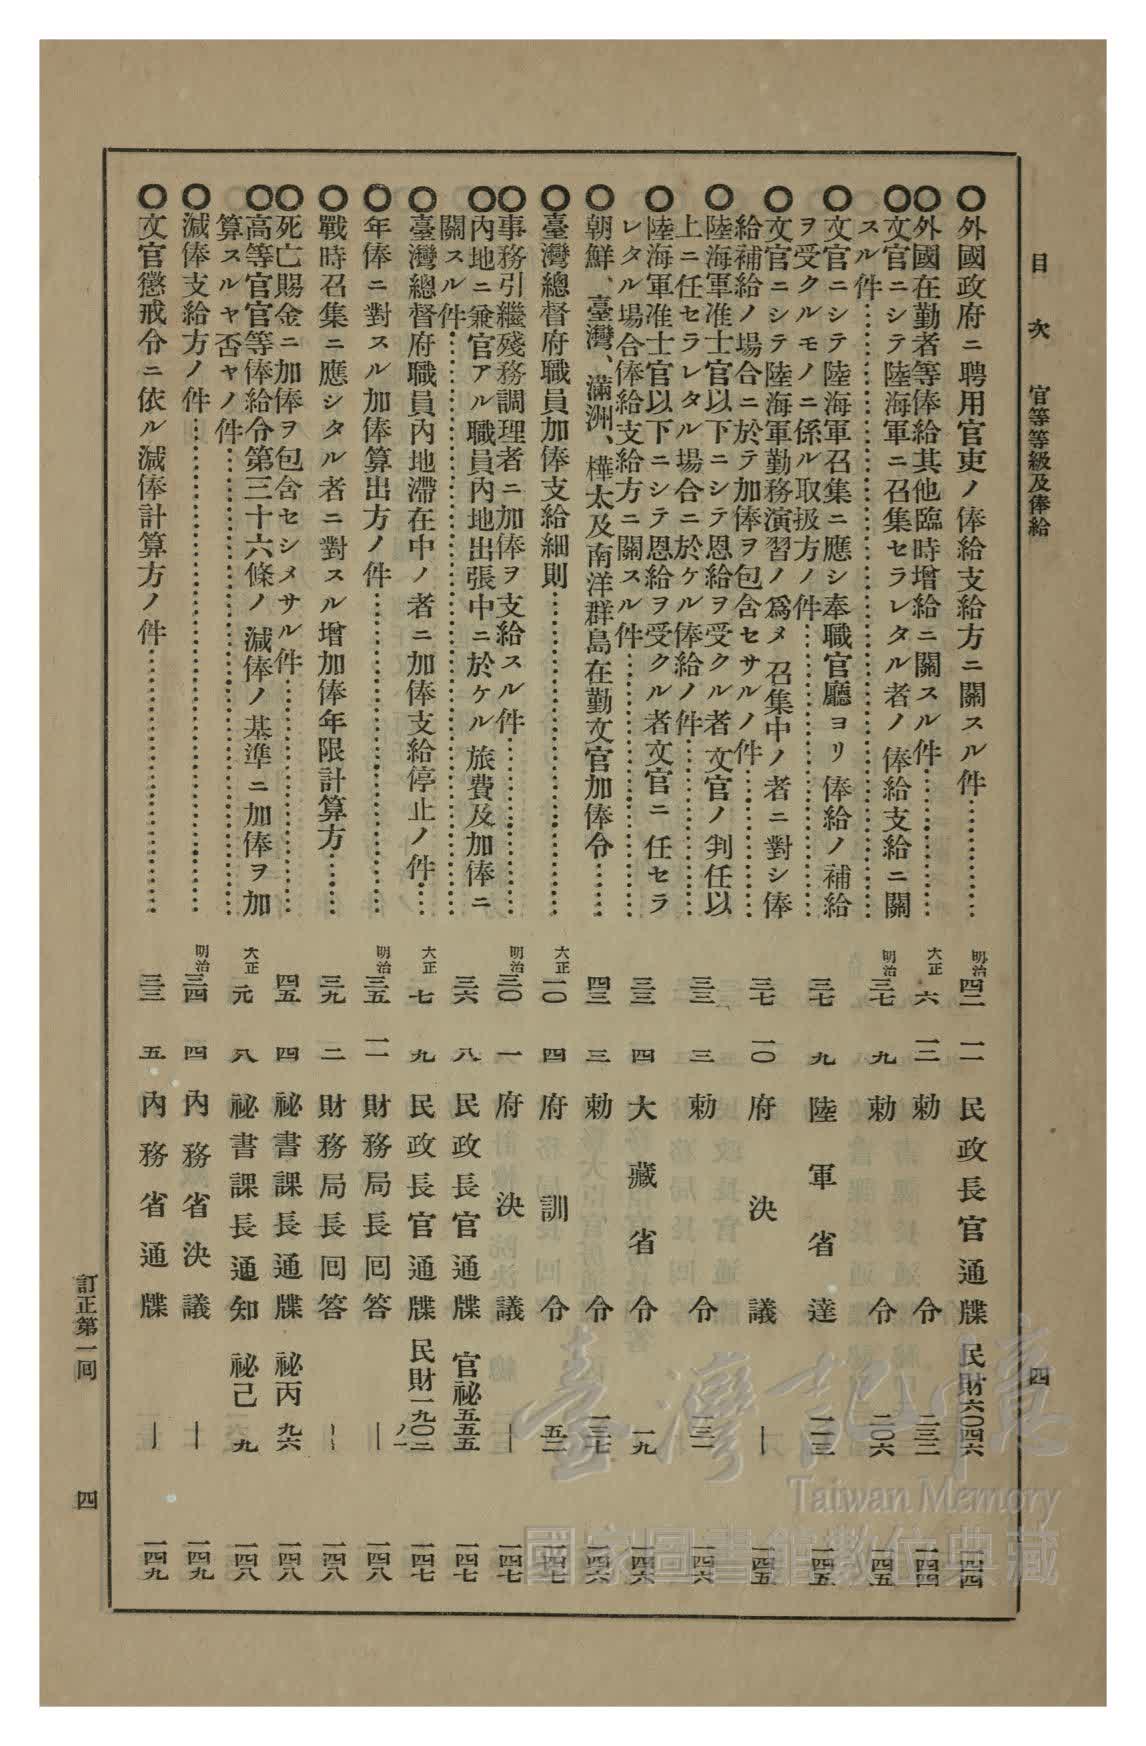 目次　官等等級及俸給　四
○外國政府ニ聘用官吏ノ俸給支給方ニ關スル件……明治四二　一一　民政長官通牒　民財六〇四六　一四四
○外國在勤者等俸給其他臨時增給ニ關スル件……大正六　一二　勅令　二三二　一四四
○文官ニシテ陸海軍ニ召集セラレタル者ノ俸給支給ニ關
スル件……明治三七　九　勅令　二〇六　一四五
○文官ニシテ陸海軍召集ニ應シ奉職官廳ヨリ俸給ノ補給
ヲ受クルモノニ係ル取扱方ノ件……三七　九　陸軍省達　一二三　一四五
○文官ニシテ陸海軍勤務演習ノ爲メ召集中ノ者ニ對シ俸
給補給ノ場合ニ於テ加俸ヲ包含セサルノ件……三七　一〇　府決議　―　一四五
○陸海軍准士官以下ニシテ恩給ヲ受クル者文官ノ判任以
上ニ任セラレタル場合ニ於ケル俸給ノ件……三三　三　勅令　三一　一四六
○陸海軍准士官以下ニシテ恩給ヲ受クル者文官ニ任セラ
レタル場合俸給支給方ニ關スル件……三三　四　大藏省令　一九　一四六
○朝鮮、臺灣、滿洲、樺太及南洋群島在勤文官加俸令……四三　三　勅令　一三七　一四六
○臺灣總督府職員加俸支給細則……大正一〇　四　府訓令　五二　一四七
○事務引繼殘務調理者ニ加俸ヲ支給スル件……明治三〇　一　府決議　―　一四七
○內地ニ兼官アル職員內地出張中ニ於ケル旅費及加俸ニ
關スル件……三六　八　民政長官通牒　官祕五五五　一四七
○臺灣總督府職員內地滯在中ノ者ニ加俸支給停止ノ件……大正七　九　民政長官通牒　民財一九〇二八ノ一　一四七
○年俸ニ對スル加俸算出方ノ件……明治三五　一一　財務局長回答　―　一四八
○戰時召集ニ應シタル者ニ對スル增加俸年限計算方……三九　二　財務局長回答　―　一四八
○死亡賜金ニ加俸ヲ包含セシメサル件……四五　四　祕書課長通牒　祕丙九六　一四八
○高等官官等俸給令第三十六條ノ減俸ノ基準ニ加俸ヲ加
算スルヤ否ヤノ件……大正元　八　祕書課長通知　祕己九　一四八
○減俸支給方ノ件……明治三四　四　內務省決議　―　一四九
○文官懲戒令ニ依ル減俸計算方ノ件……三三　五　內務省通牒　―　一四九
訂正第一回　四
臺灣記憶
Taiwan Memory
國家圖書館數位典藏